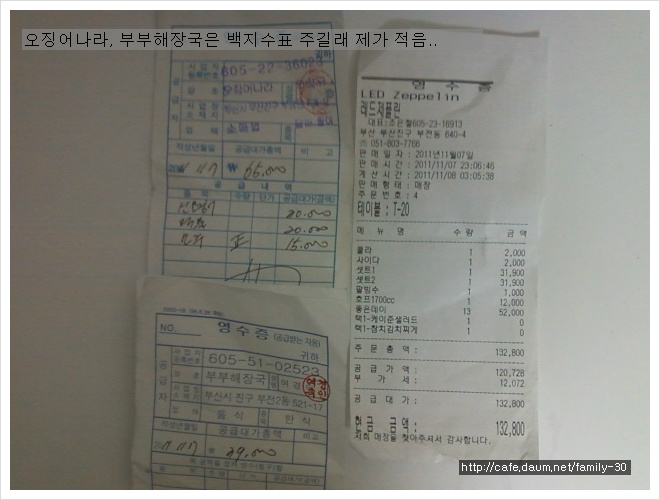 오징어나라, 부부해장국은 백지수표 주길래 제가 적음..
귀하
사업자
등록번호
605-22-36023
오징어나라
부산시 부산진구
소매업
작성년월일
공급대가총액
비고
11/7
₩ 65,000
공급내역
품목
수량
단가
공급대가(금액)
20,000
20,000
正
15,000
NO.
영수증
(공급받는자용)
귀하
공급자
사업자
등록번호
605-51-02523
상호
부부해장국
성명
사업장
소재지
부산시 진구 부전2동 521-17
업태
음식
종목
한식
작성년월일
공급대가총액
비고
11/7
29,000
영수증
LED Zeppelin
레드제플린
대표:조은철605-23-16913
부산 부산진구 부전동 640-4
☎ 051-803-7766
판매일자 : 2011년11월07일
판매시간 : 2011/11/07 23:06:46
계산시간 : 2011/11/08 03:05:38
판매형태 : 매장
주문번호 : 4
테이블 : T-20
메뉴명 수량 금액
콜라 1 2,000
사이다 1 2,000
셋트1 1 31,900
셋트2 1 31,900
팥빙수 1 1,000
호프1700cc 1 12,000
좋은데이 13 52,000
택1-케이준샐러드 1 0
택1-참치김치찌개 1 0
주문총액: 132,800
공급가액: 120,728
부가세: 12,072
공급대가: 132,800
현금금액: 132,800
저희 매장을 찾아주셔서 감사합니다.
http://cafe.daum.net/family-30